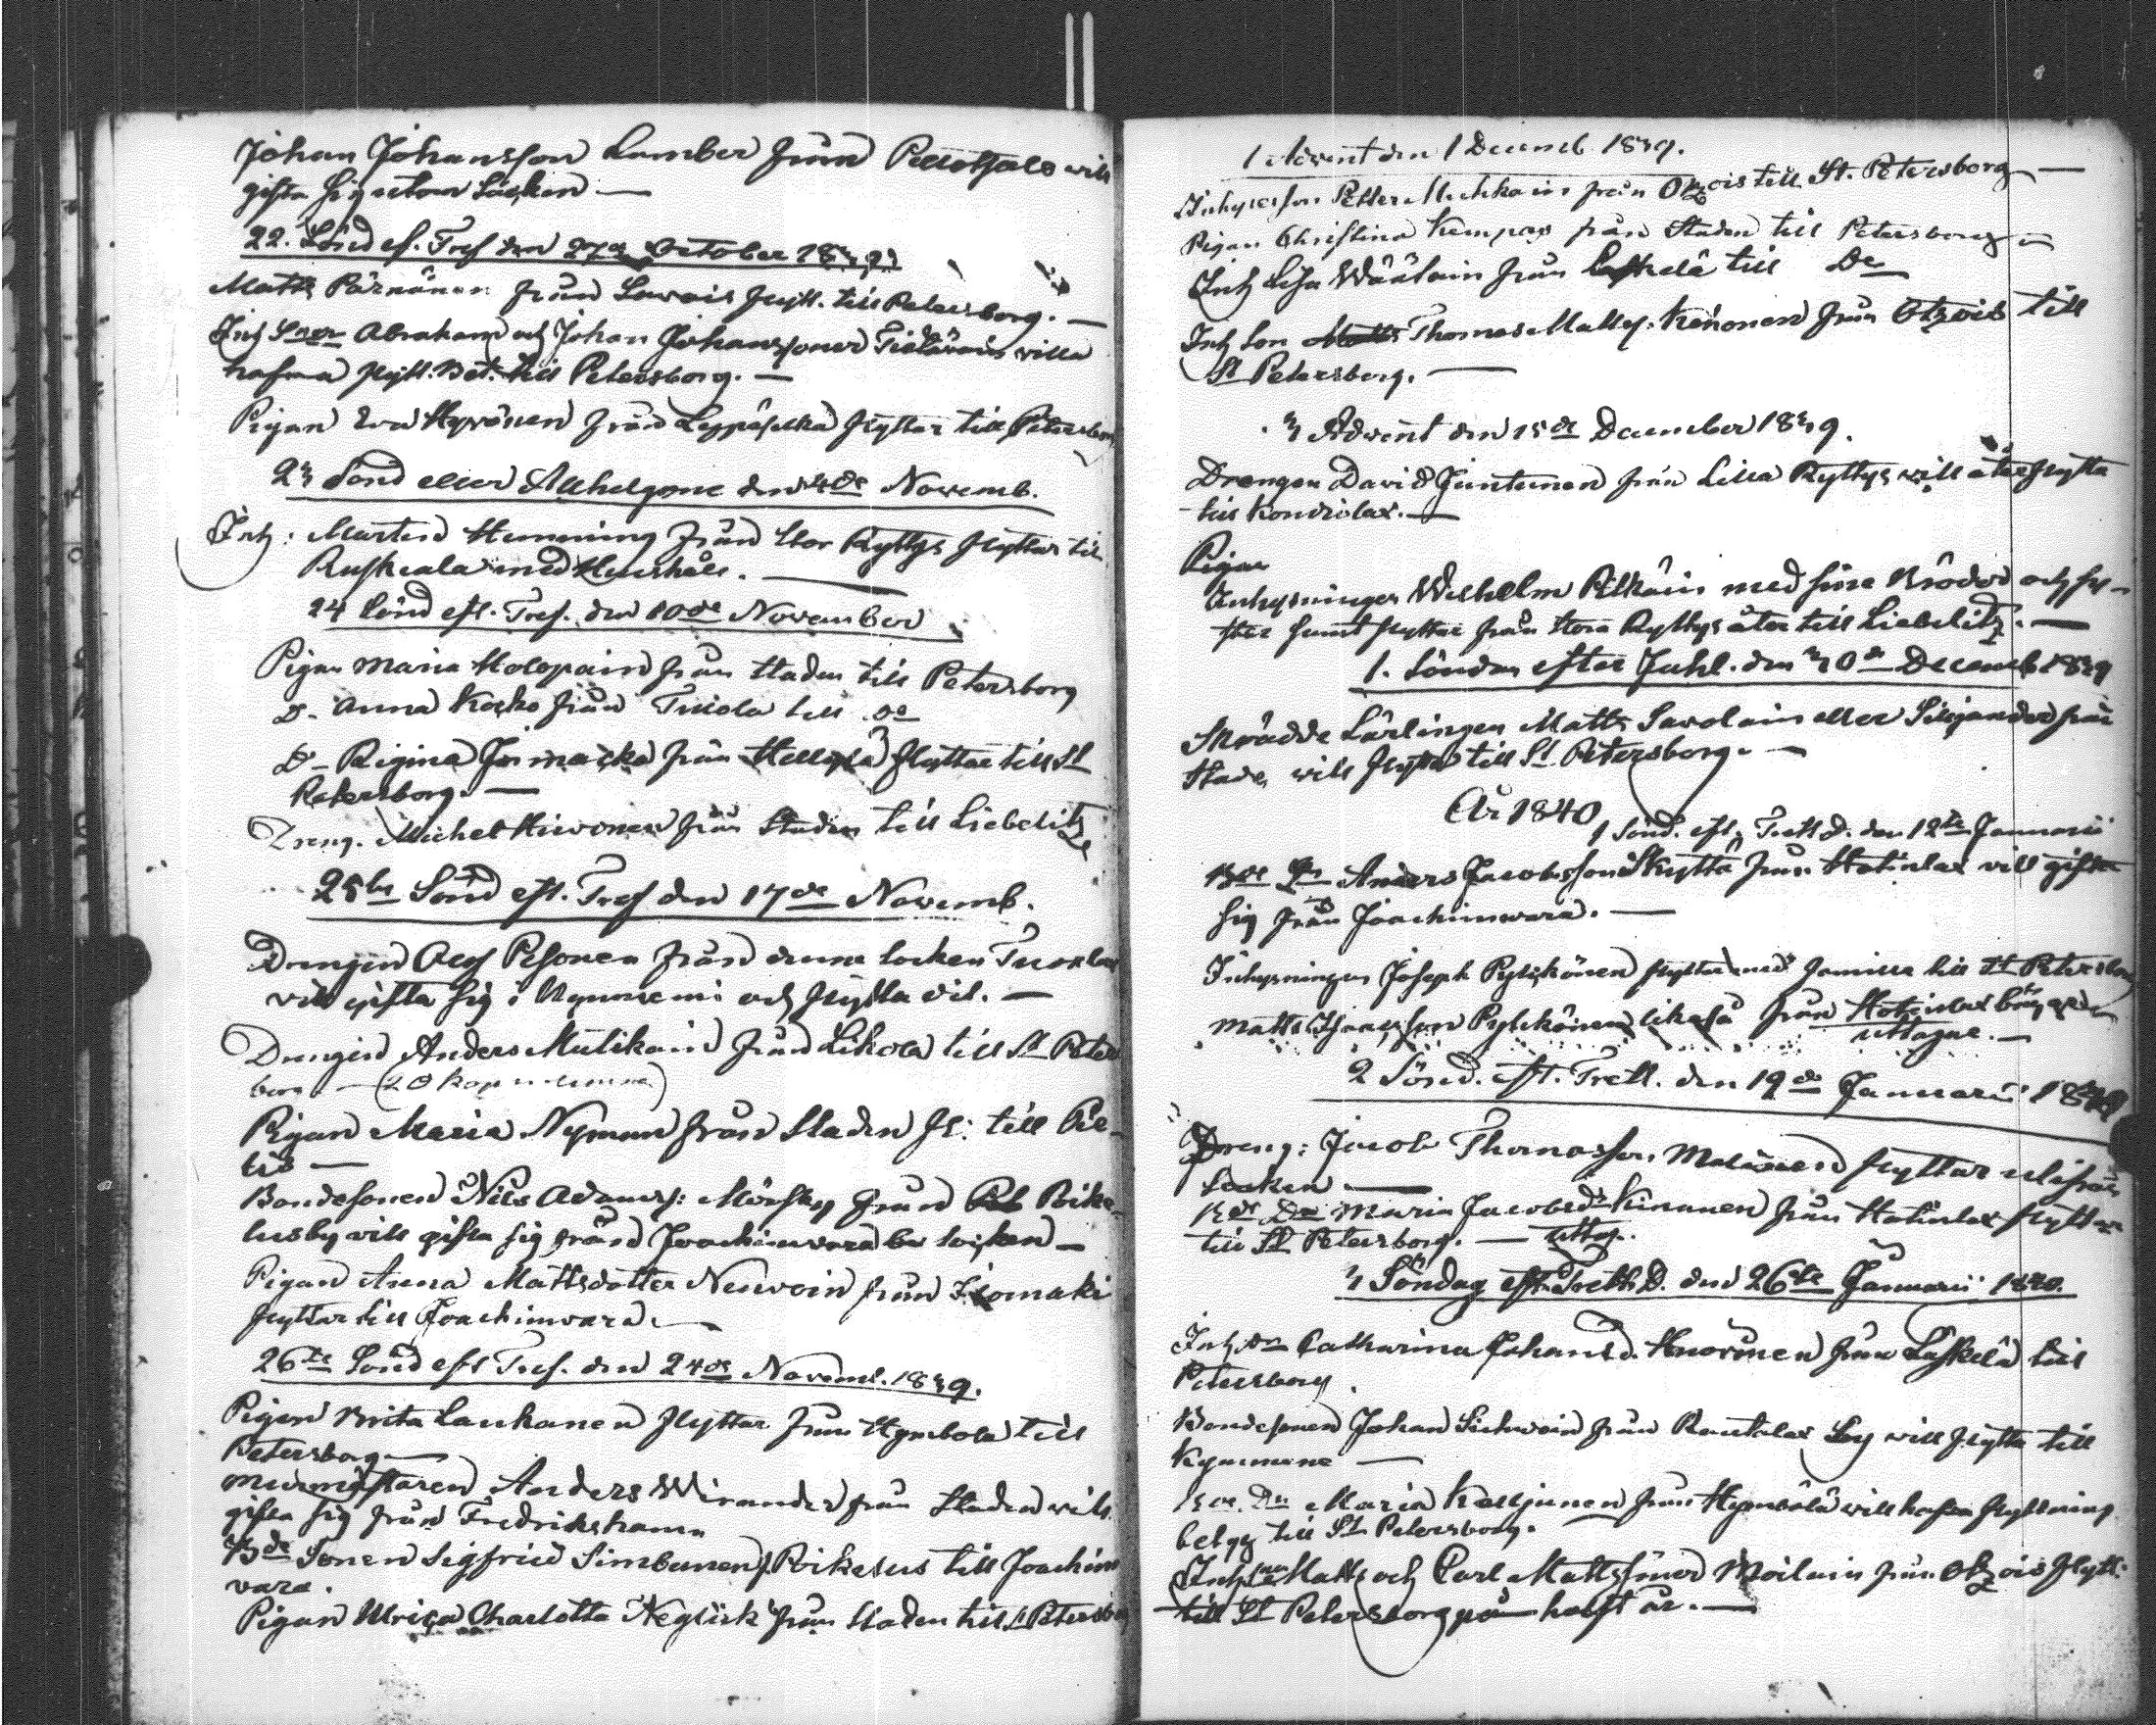 Johan Johansson Lamber från Pellotsalo will
gifta sig utom Socken —
22. Sönd ef. Tref den 27de October 1839
Matts Pärnänen från Sarvais flytt. till Petersborg. —
Inh Sner Abraham och Johan Johanssoner Tielinain villa
hafva flytt. Bet. till Petersborg. —
Pigan Eva Hyvönen från Leppäselkä flyttar till Petersborg
23 Sönd eller Allhelgone den 4de Novemb.
Inh: Mårten Hemming från Stor Ryttys flyttar till
Ruskeala med Hushåll.
24 Sönd eft. Tref. den 10de November
Pigan Maria Holopain från Staden till Petersborg
D- Anna Kosko från Tuiola till Do
D- Regina Jormacka från Hellylä flyttar till St
Petersborg. —
Dreng. Michel Hirvonen från Staden till Liebelitz
25te Sönd eft. Tref den 17de Novemb.
Drengen Olof Pesonen från denna Socken Tuoxlax
vill gifta sig i Nyumemi och flytta dit. —
Drengen Anders Mutikain från Likola till St Peters
borg — (20 kop
Pigan Maria Nyman från Staden fl: till Pie-
lis —
Bondesonen Nils Adamss: Mörsky från Rike-
lusby will gifta sig från Joachimvara socken —
Pigan Anna Mattsdotter Neuvoin från Isomäki
flyttar till Joachimvara.
26te Sönd eft Tref. den 24de Novemb. 1839.
Pigan Brita Laukanen flyttar från Hymbola till
Petersborg —
Murmästaren Anders Wirander från Staden will
gifta sig från Fredrikshamn
Bde Sonen Sigfried Simbanen f. Rikesus till Joachim
vara.
Pigan Ulrica Charlotta Neglick från Staden till St Petersborg
1 Advent den 1 Decemb 1839.
Inhyseson Petter Muhkain från Otzois till St. Petersborg —
Pigan Christina Kempas från Staden till Petersborg —
Inh Lisa Wäätäin från Läskelä till Do
Inh Son Thomas Mattss. Kenonen från Otzois till
St Petersborg. —
3 Advent den 15de December 1839.
Drengen David Juntunen från Lilla Ryttys will återflytta
till Kondiolax. —
Pigan
Inhysningen Wilhelm Pitkäin med sina Bröder och sy-
ster samt flyttar från Stora Ryttys åter till Liebelitz. —
1. Söndan efter Juhl. den 30de Decemb 1839
Skrädde Lärlingen Matts Savolain eller Siljander från
Stade, will flytta till St Petersborg. —
År 1840
1 Sönd. eft. Trett d. den 12te Januarii
Bde Sn Anders Jacobsson Skyttä från Hatinlax vill gifta
sig från Joachimvara. —
Inhysningen Joseph Pylckönen flyttar med familie till St Petersborg
Matts Pylckönen likaså från Hatinlax
uttagne. —
2 Sönd. eft. Trett. den 19de Januari 1840
Dreng: Jacob Thomasson Malinen flyttar utifrån
Socken —
Bde Dr Maria Jacobsdr Kinnunen från Hatinlax flyttar
till St Petersborg. — uttag.
3 Söndag eft. Trett. D. den 26te Januarii 1840.
Inh dr Catharina Johansd. Huovinen från Läskelä till
Petersborg.
Bondesonen Johan Sichvoin från Rautalax By will flytta till
Kymmene —
Bde. Dr Maria Kolljonen från Hymbölä will hafva flyttning
betyg till St Petersborg.
Inh Matts och Carl Mattssöner Moilain från Otzois flytt.
till St Petersborg på halft år. —